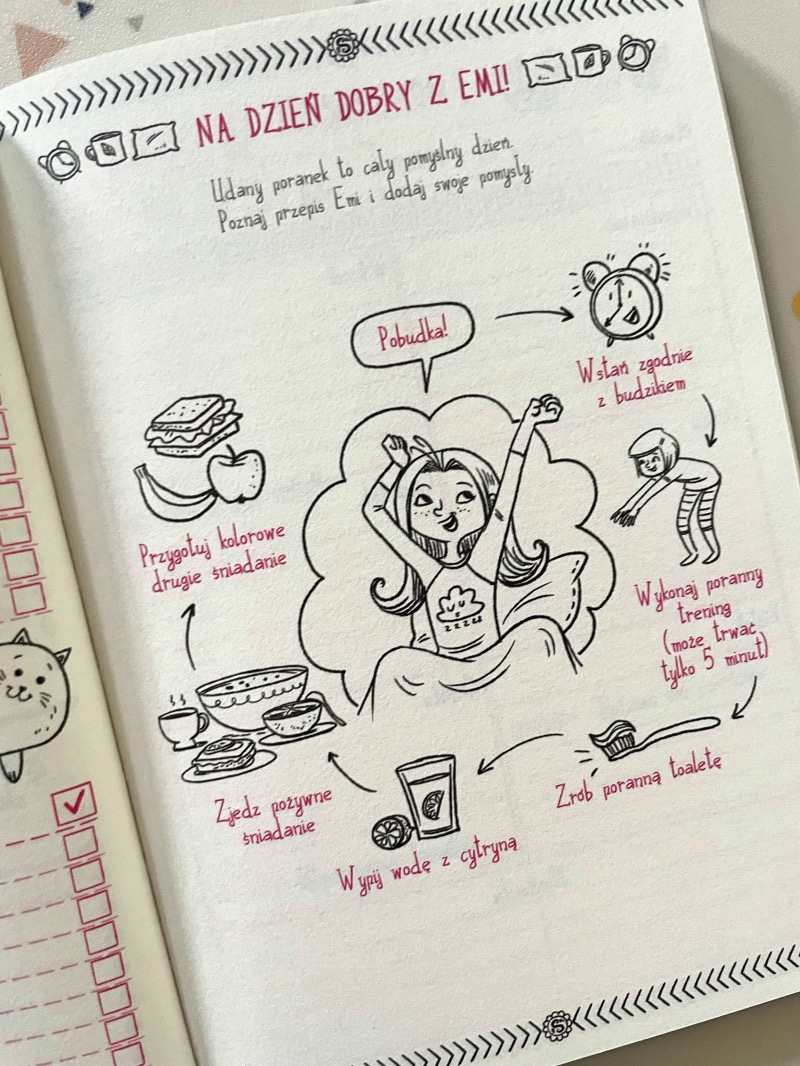 NA DZIEŃ DOBRY Z EMI!
Udany poranek to cały pomyślny dzień.
Poznaj przepis Emi i dodaj swoje pomysły.
Pobudka!
Wstań zgodnie
z budzikiem
Wykonaj poranny
trening
(może trwać
tylko 5 minut)
Zrób poranną toaletę
Wypij wodę z cytryną
Zjedz pożywne
śniadanie
Przygotuj kolorowe
drugie śniadanie
zzzzz